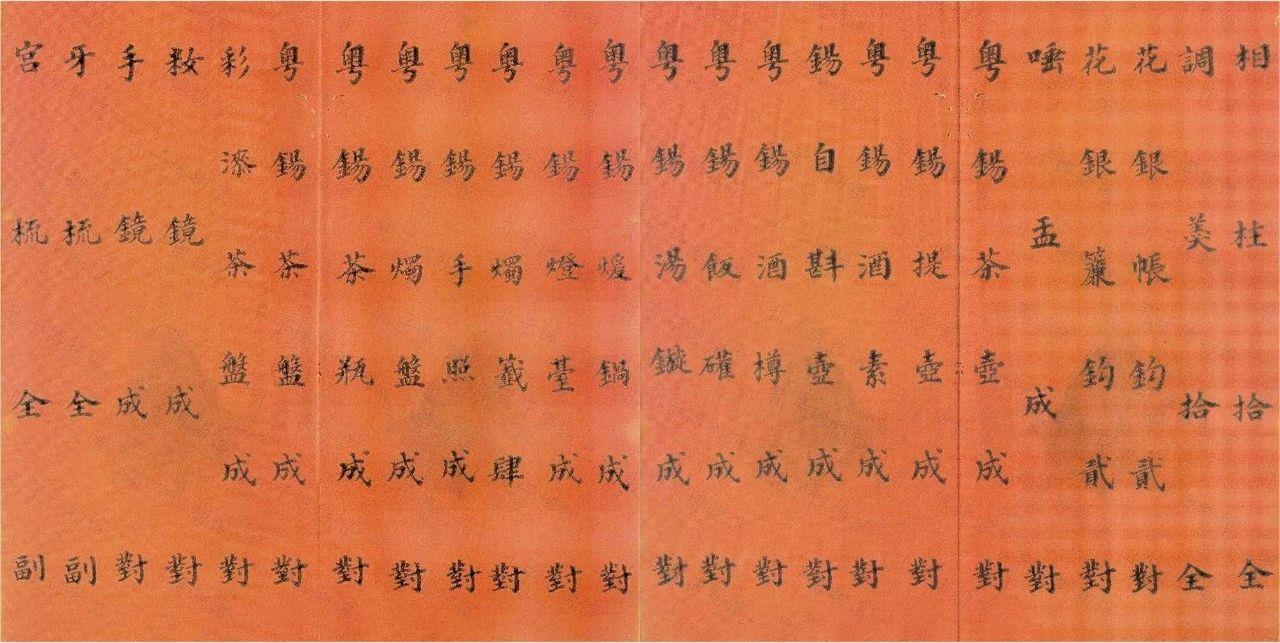 相柱拾全
調羹拾全
花銀帳鈎貳對
花銀簾鈎貳對
唾盂成對
粵錫茶壺成對
粵錫提壺成對
粵錫酒素成對
錫自斟壺成對
粵錫酒樽成對
粵錫飯礶成對
粵錫湯鏇成對
粵錫煖鍋成對
粵錫燈臺成對
粵錫燭籤肆對
粵錫手照成對
粵錫燭盤成對
粵錫茶瓶成對
粵錫茶盤成對
彩漆茶盤成對
籹鏡成對
手鏡成對
牙梳全副
宮梳全副